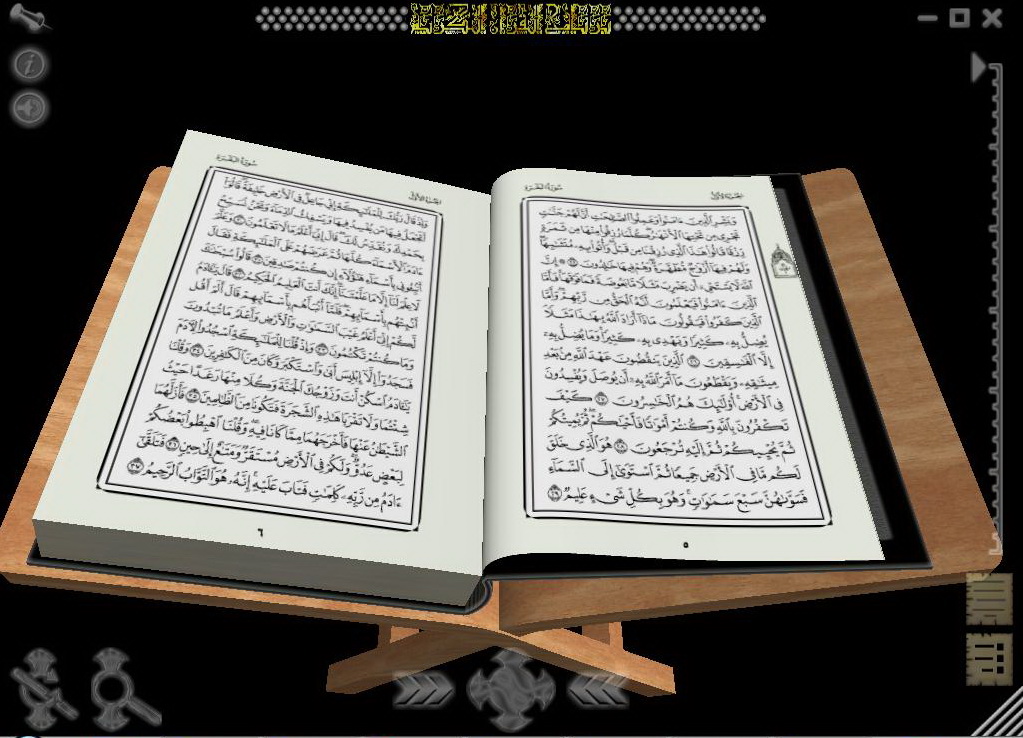 سُورَةُ البَقَرَةِ
الجُزْءُ الأَوَّلُ
وَبَشِّرِ ٱلَّذِينَ ءَامَنُوا۟ وَعَمِلُوا۟ ٱلصَّٰلِحَٰتِ أَنَّ لَهُمْ جَنَّٰتٍ
تَجْرِى مِن تَحْتِهَا ٱلْأَنْهَٰرُ كُلَّمَا رُزِقُوا۟ مِنْهَا مِن ثَمَرَةٍ
رِّزْقًا قَالُوا۟ هَٰذَا ٱلَّذِى رُزِقْنَا مِن قَبْلُ وَأُتُوا۟ بِهِۦ مُتَشَٰبِهًا
وَلَهُمْ فِيهَآ أَزْوَٰجٌ مُّطَهَّرَةٌ وَهُمْ فِيهَا خَٰلِدُونَ ٢٥ ۞ إِنَّ
ٱللَّهَ لَا يَسْتَحْىِۦٓ أَن يَضْرِبَ مَثَلًا مَّا بَعُوضَةً فَمَا فَوْقَهَا فَأَمَّا
ٱلَّذِينَ ءَامَنُوا۟ فَيَعْلَمُونَ أَنَّهُ ٱلْحَقُّ مِن رَّبِّهِمْ وَأَمَّا
ٱلَّذِينَ كَفَرُوا۟ فَيَقُولُونَ مَاذَآ أَرَادَ ٱللَّهُ بِهَٰذَا مَثَلًا
يُضِلُّ بِهِۦ كَثِيرًا وَيَهْدِى بِهِۦ كَثِيرًا وَمَا يُضِلُّ بِهِۦٓ
إِلَّا ٱلْفَٰسِقِينَ ٢٦ ٱلَّذِينَ يَنقُضُونَ عَهْدَ ٱللَّهِ مِنۢ بَعْدِ
مِيثَٰقِهِۦ وَيَقْطَعُونَ مَآ أَمَرَ ٱللَّهُ بِهِۦٓ أَن يُوصَلَ وَيُفْسِدُونَ
فِى ٱلْأَرْضِ أُو۟لَٰٓئِكَ هُمُ ٱلْخَٰسِرُونَ ٢٧ كَيْفَ
تَكْفُرُونَ بِٱللَّهِ وَكُنتُمْ أَمْوَٰتًا فَأَحْيَٰكُمْ ثُمَّ يُمِيتُكُمْ
ثُمَّ يُحْيِيكُمْ ثُمَّ إِلَيْهِ تُرْجَعُونَ ٢٨ هُوَ ٱلَّذِى خَلَقَ
لَكُم مَّا فِى ٱلْأَرْضِ جَمِيعًا ثُمَّ ٱسْتَوَىٰٓ إِلَى ٱلسَّمَآءِ
فَسَوَّىٰهُنَّ سَبْعَ سَمَٰوَٰتٍ وَهُوَ بِكُلِّ شَىْءٍ عَلِيمٌ ٢٩
٥
سُورَةُ البَقَرَةِ
الجُزْءُ الأَوَّلُ
وَإِذْ قَالَ رَبُّكَ لِلْمَلَٰٓئِكَةِ إِنِّى جَاعِلٌ فِى ٱلْأَرْضِ خَلِيفَةً قَالُوٓا۟
أَتَجْعَلُ فِيهَا مَن يُفْسِدُ فِيهَا وَيَسْفِكُ ٱلدِّمَآءَ وَنَحْنُ نُسَبِّحُ
بِحَمْدِكَ وَنُقَدِّسُ لَكَ قَالَ إِنِّىٓ أَعْلَمُ مَا لَا تَعْلَمُونَ ٣٠ وَعَلَّمَ
ءَادَمَ ٱلْأَسْمَآءَ كُلَّهَا ثُمَّ عَرَضَهُمْ عَلَى ٱلْمَلَٰٓئِكَةِ فَقَالَ
أَنۢبِـُٔونِى بِأَسْمَآءِ هَٰٓؤُلَآءِ إِن كُنتُمْ صَٰدِقِينَ ٣١ قَالُوا۟ سُبْحَٰنَكَ
لَا عِلْمَ لَنَآ إِلَّا مَا عَلَّمْتَنَآ إِنَّكَ أَنتَ ٱلْعَلِيمُ ٱلْحَكِيمُ ٣٢ قَالَ يَٰٓـَٔادَمُ
أَنۢبِئْهُم بِأَسْمَآئِهِمْ فَلَمَّآ أَنۢبَأَهُم بِأَسْمَآئِهِمْ قَالَ أَلَمْ أَقُل
لَّكُمْ إِنِّىٓ أَعْلَمُ غَيْبَ ٱلسَّمَٰوَٰتِ وَٱلْأَرْضِ وَأَعْلَمُ مَا تُبْدُونَ
وَمَا كُنتُمْ تَكْتُمُونَ ٣٣ وَإِذْ قُلْنَا لِلْمَلَٰٓئِكَةِ ٱسْجُدُوا۟ لِـَٔادَمَ
فَسَجَدُوٓا۟ إِلَّآ إِبْلِيسَ أَبَىٰ وَٱسْتَكْبَرَ وَكَانَ مِنَ ٱلْكَٰفِرِينَ ٣٤ وَقُلْنَا
يَٰٓـَٔادَمُ ٱسْكُنْ أَنتَ وَزَوْجُكَ ٱلْجَنَّةَ وَكُلَا مِنْهَا رَغَدًا حَيْثُ
شِئْتُمَا وَلَا تَقْرَبَا هَٰذِهِ ٱلشَّجَرَةَ فَتَكُونَا مِنَ ٱلظَّٰلِمِينَ ٣٥ فَأَزَلَّهُمَا
ٱلشَّيْطَٰنُ عَنْهَا فَأَخْرَجَهُمَا مِمَّا كَانَا فِيهِ وَقُلْنَا ٱهْبِطُوا۟ بَعْضُكُمْ
لِبَعْضٍ عَدُوٌّ وَلَكُمْ فِى ٱلْأَرْضِ مُسْتَقَرٌّ وَمَتَٰعٌ إِلَىٰ حِينٍ ٣٦ فَتَلَقَّىٰٓ
ءَادَمُ مِن رَّبِّهِۦ كَلِمَٰتٍ فَتَابَ عَلَيْهِ إِنَّهُۥ هُوَ ٱلتَّوَّابُ ٱلرَّحِيمُ ٣٧
٦